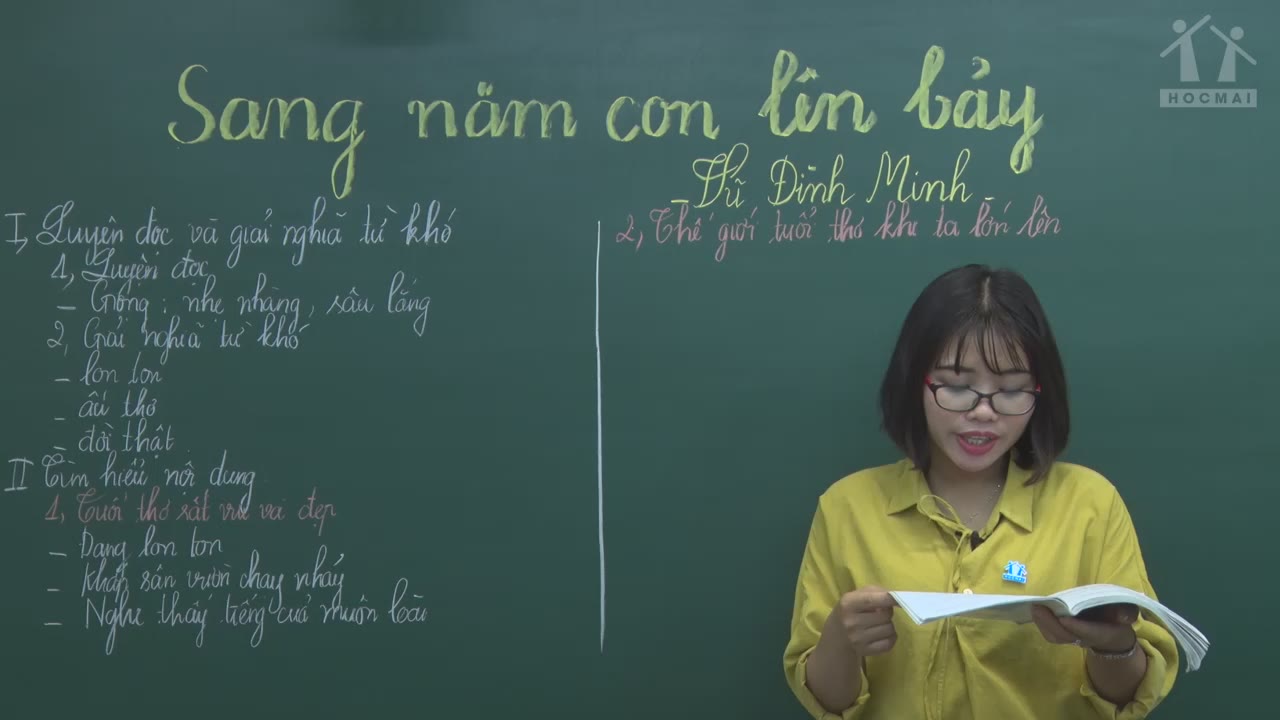 HOCMAI
Sang năm con lên bảy
- Vũ Đình Minh -
I, Luyện đọc và giải nghĩa từ khó
1, Luyện đọc
- Giọng: nhẹ nhàng, sâu lắng
2, Giải nghĩa từ khó
- lon ton
- ấu thơ
- đời thật
II Tìm hiểu nội dung
1, Tuổi thơ rất vui và đẹp
- Đang lon ton
- Khắp sân vườn chạy nhảy
- Nghe thấy tiếng của muôn loài
2, Thế giới tuổi thơ khi ta lớn lên